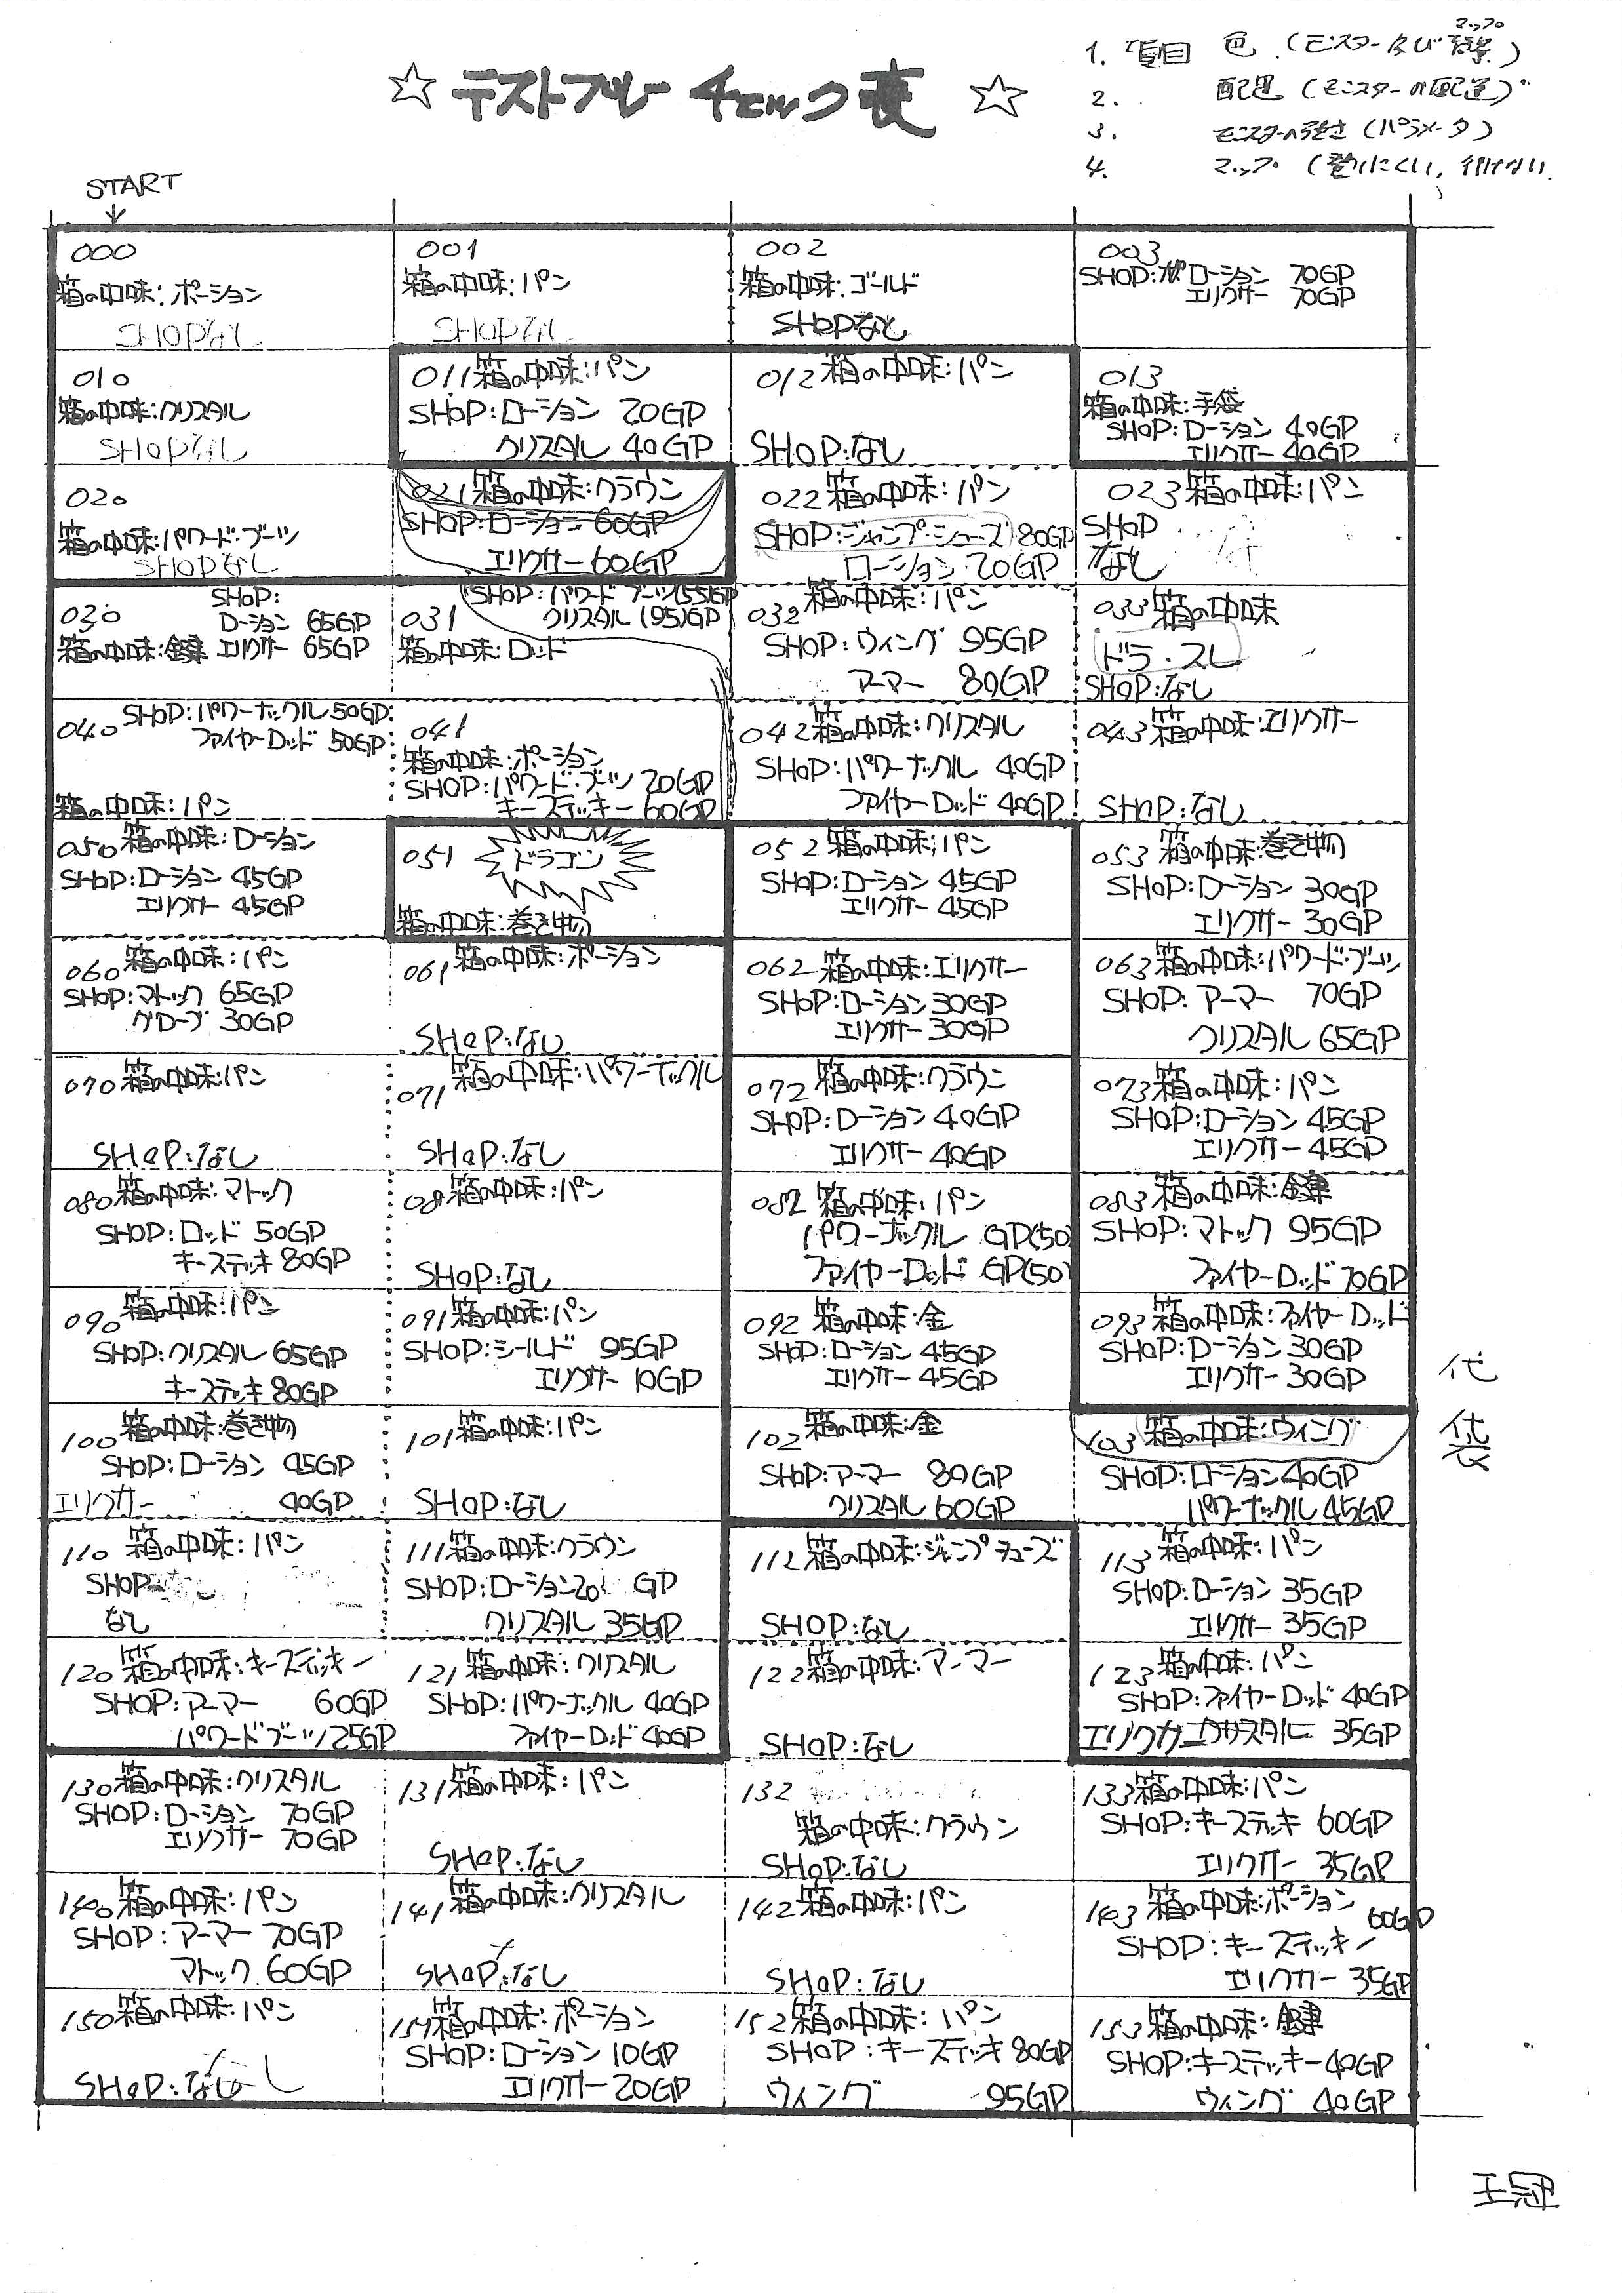 ☆ テストプレー チェック表 ☆
1. 項目 色 (モンスター及び背景)
マップ
2. 配置 (モンスターの配置)
3. モンスターの強さ (パラメータ)
4. マップ (登りにくい, 行けない
START
↓
000
箱の中味:ポーション
SHOPなし
001
箱の中味:パン
SHOPなし
002
箱の中味:ゴールド
SHOPなし
003
SHOP: ローション 70GP
エリクサー 70GP
010
箱の中味:クリスタル
SHOPなし
011 箱の中味:パン
SHOP:ローション 20GP
クリスタル 40GP
012 箱の中味:パン
SHOP:なし
013
箱の中味:手袋
SHOP:ローション 40GP
エリクサー 40GP
020
箱の中味:パワード・ブーツ
SHOPなし
021 箱の中味:クラウン
SHOP:ローション 60GP
エリクサー 60GP
022 箱の中味:パン
SHOP:ジャンプ・シューズ 80GP
ローション 20GP
023 箱の中味:パン
SHOP
なし
030 SHOP:
ローション 65GP
箱の中味:鍵 エリクサー 65GP
SHOP:パワード ブーツ(55)GP
031 クリスタル (95)GP
箱の中味:ロッド
032 箱の中味:パン
SHOP:ウィング 95GP
アーマー 80GP
033 箱の中味
ドラ・スレ
SHOP:なし
040 SHOP:パワーナックル 50GP
ファイヤーロッド 50GP
箱の中味:パン
041
箱の中味:ポーション
SHOP:パワード・ブーツ 20GP
キーステッキー 60GP
042 箱の中味:クリスタル
SHOP:パワーナックル 40GP
ファイヤーロッド 40GP
043 箱の中味:エリクサー
SHOP:なし
050 箱の中味:ローション
SHOP:ローション 45GP
エリクサー 45GP
051 ドラゴン
箱の中味:巻き物
052 箱の中味:パン
SHOP:ローション 45GP
エリクサー 45GP
053 箱の中味:巻き物
SHOP:ローション 30GP
エリクサー 30GP
060 箱の中味:パン
SHOP:マトック 65GP
グローブ 30GP
061 箱の中味:ポーション
SHOP:なし
062 箱の中味:エリクサー
SHOP:ローション 30GP
エリクサー 30GP
063 箱の中味:パワード・ブーツ
SHOP: アーマー 70GP
クリスタル 65GP
070 箱の中味:パン
SHOP:なし
071 箱の中味:パワーナックル
SHOP:なし
072 箱の中味:クラウン
SHOP:ローション 40GP
エリクサー 40GP
073 箱の中味:パン
SHOP:ローション 45GP
エリクサー 45GP
080 箱の中味:マトック
SHOP:ロッド 50GP
キーステッキ 80GP
081 箱の中味:パン
SHOP:なし
082 箱の中味:パン
パワーナックル GP(50)
ファイヤーロッド GP(50)
083 箱の中味:鍵
SHOP:マトック 95GP
ファイヤーロッド 70GP
090 箱の中味:パン
SHOP:クリスタル 65GP
キーステッキ 80GP
091 箱の中味:パン
SHOP:シールド 95GP
エリクサー 10GP
092 箱の中味:金
SHOP:ローション 45GP
エリクサー 45GP
093 箱の中味:ファイヤーロッド
SHOP:ローション 30GP
エリクサー 30GP
代
袋
100 箱の中味:巻き物
SHOP:ローション 45GP
エリクサー 40GP
101 箱の中味:パン
SHOP:なし
102 箱の中味:金
SHOP:アーマー 80GP
クリスタル 60GP
103 箱の中味:ウィング
SHOP:ローション 40GP
パワーナックル 45GP
110 箱の中味:パン
SHOP
なし
111 箱の中味:クラウン
SHOP:ローション20 GP
クリスタル 35GP
112 箱の中味:ジャンプシューズ
SHOP:なし
113 箱の中味:パン
SHOP:ローション 35GP
エリクサー 35GP
120 箱の中味:キーステッキー
SHOP:アーマー 60GP
パワードブーツ 25GP
121 箱の中味:クリスタル
SHOP:パワーナックル 40GP
ファイヤーロッド 40GP
122 箱の中味:アーマー
SHOP:なし
123 箱の中味:パン
SHOP:ファイヤーロッド 40GP
エリクサー 35GP
130 箱の中味:クリスタル
SHOP:ローション 70GP
エリクサー 70GP
131 箱の中味:パン
SHOP:なし
132
箱の中味:クラウン
SHOP:なし
133 箱の中味:パン
SHOP:キーステッキ 60GP
エリクサー 35GP
140 箱の中味:パン
SHOP:アーマー 70GP
マトック 60GP
141 箱の中味:クリスタル
SHOP:なし
142 箱の中味:パン
SHOP:なし
143 箱の中味:ポーション
60GP
SHOP:キーステッキー
エリクサー 35GP
150 箱の中味:パン
SHOP:なし
151 箱の中味:ポーション
SHOP:ローション 10GP
エリクサー 20GP
152 箱の中味:パン
SHOP:キーステッキ 80GP
ウィング 95GP
153 箱の中味:鍵
SHOP:キーステッキー 40GP
ウィング 40GP
王冠